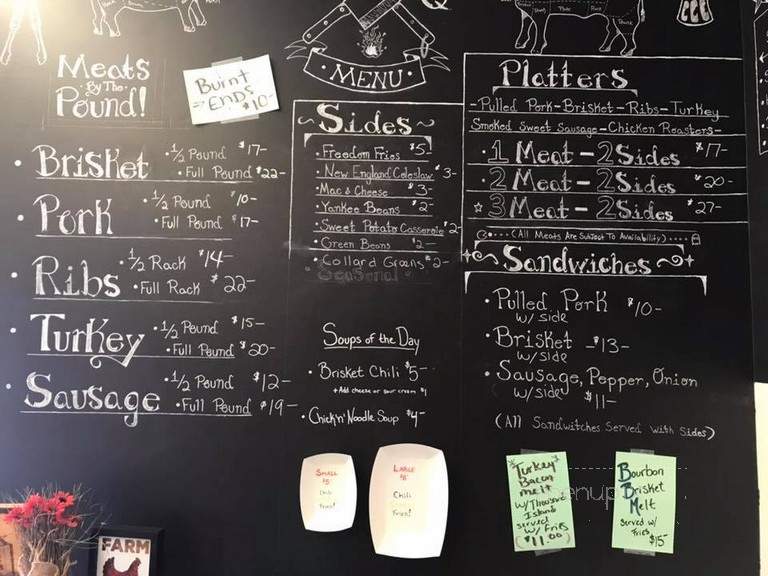 Meats
By The
Pound!
Burnt
Ends
$10-
• Brisket • 1/2 Pound $17-
• Full Pound $22-
• Pork • 1/2 Pound $10-
• Full Pound $17-
• Ribs • 1/2 Rack $14-
• Full Rack $22-
• Turkey • 1/2 Pound $15-
• Full Pound $20-
• Sausage • 1/2 Pound $12-
• Full Pound $19-
MENU
~ Sides ~
• Freedom Fries $5-
• New England Coleslaw $3-
• Mac & Cheese $3-
• Yankee Beans $2-
• Sweet Potato Casserole $2-
• Green Beans $2-
• Collard Greens $2-
Seasonal
Soups of the Day
• Brisket Chili $5-
+ Add cheese or sour cream $1
• Chick'n' Noodle Soup $4-
Small
$5
Chili
Fries!
Large
Chili
Fries!
Platters
-Pulled Pork-Brisket-Ribs-Turkey
Smoked Sweet Sausage-Chicken Roasters-
• 1 Meat - 2 Sides $17-
• 2 Meat - 2 Sides $20-
☆ 3 Meat - 2 Sides $27-
(All Meats Are Subject To Availability)
~ Sandwiches ~
• Pulled Pork $10-
w/ side
• Brisket -$13-
w/ side
• Sausage, Pepper, Onion
w/ side $11-
(All Sandwitches Served with Sides)
Turkey
Bacon
melt
w/ Thousand
Island
served
w/ Fries
($11.00)
Bourbon
Brisket
Melt
served w/
Fries
$15-
FARM